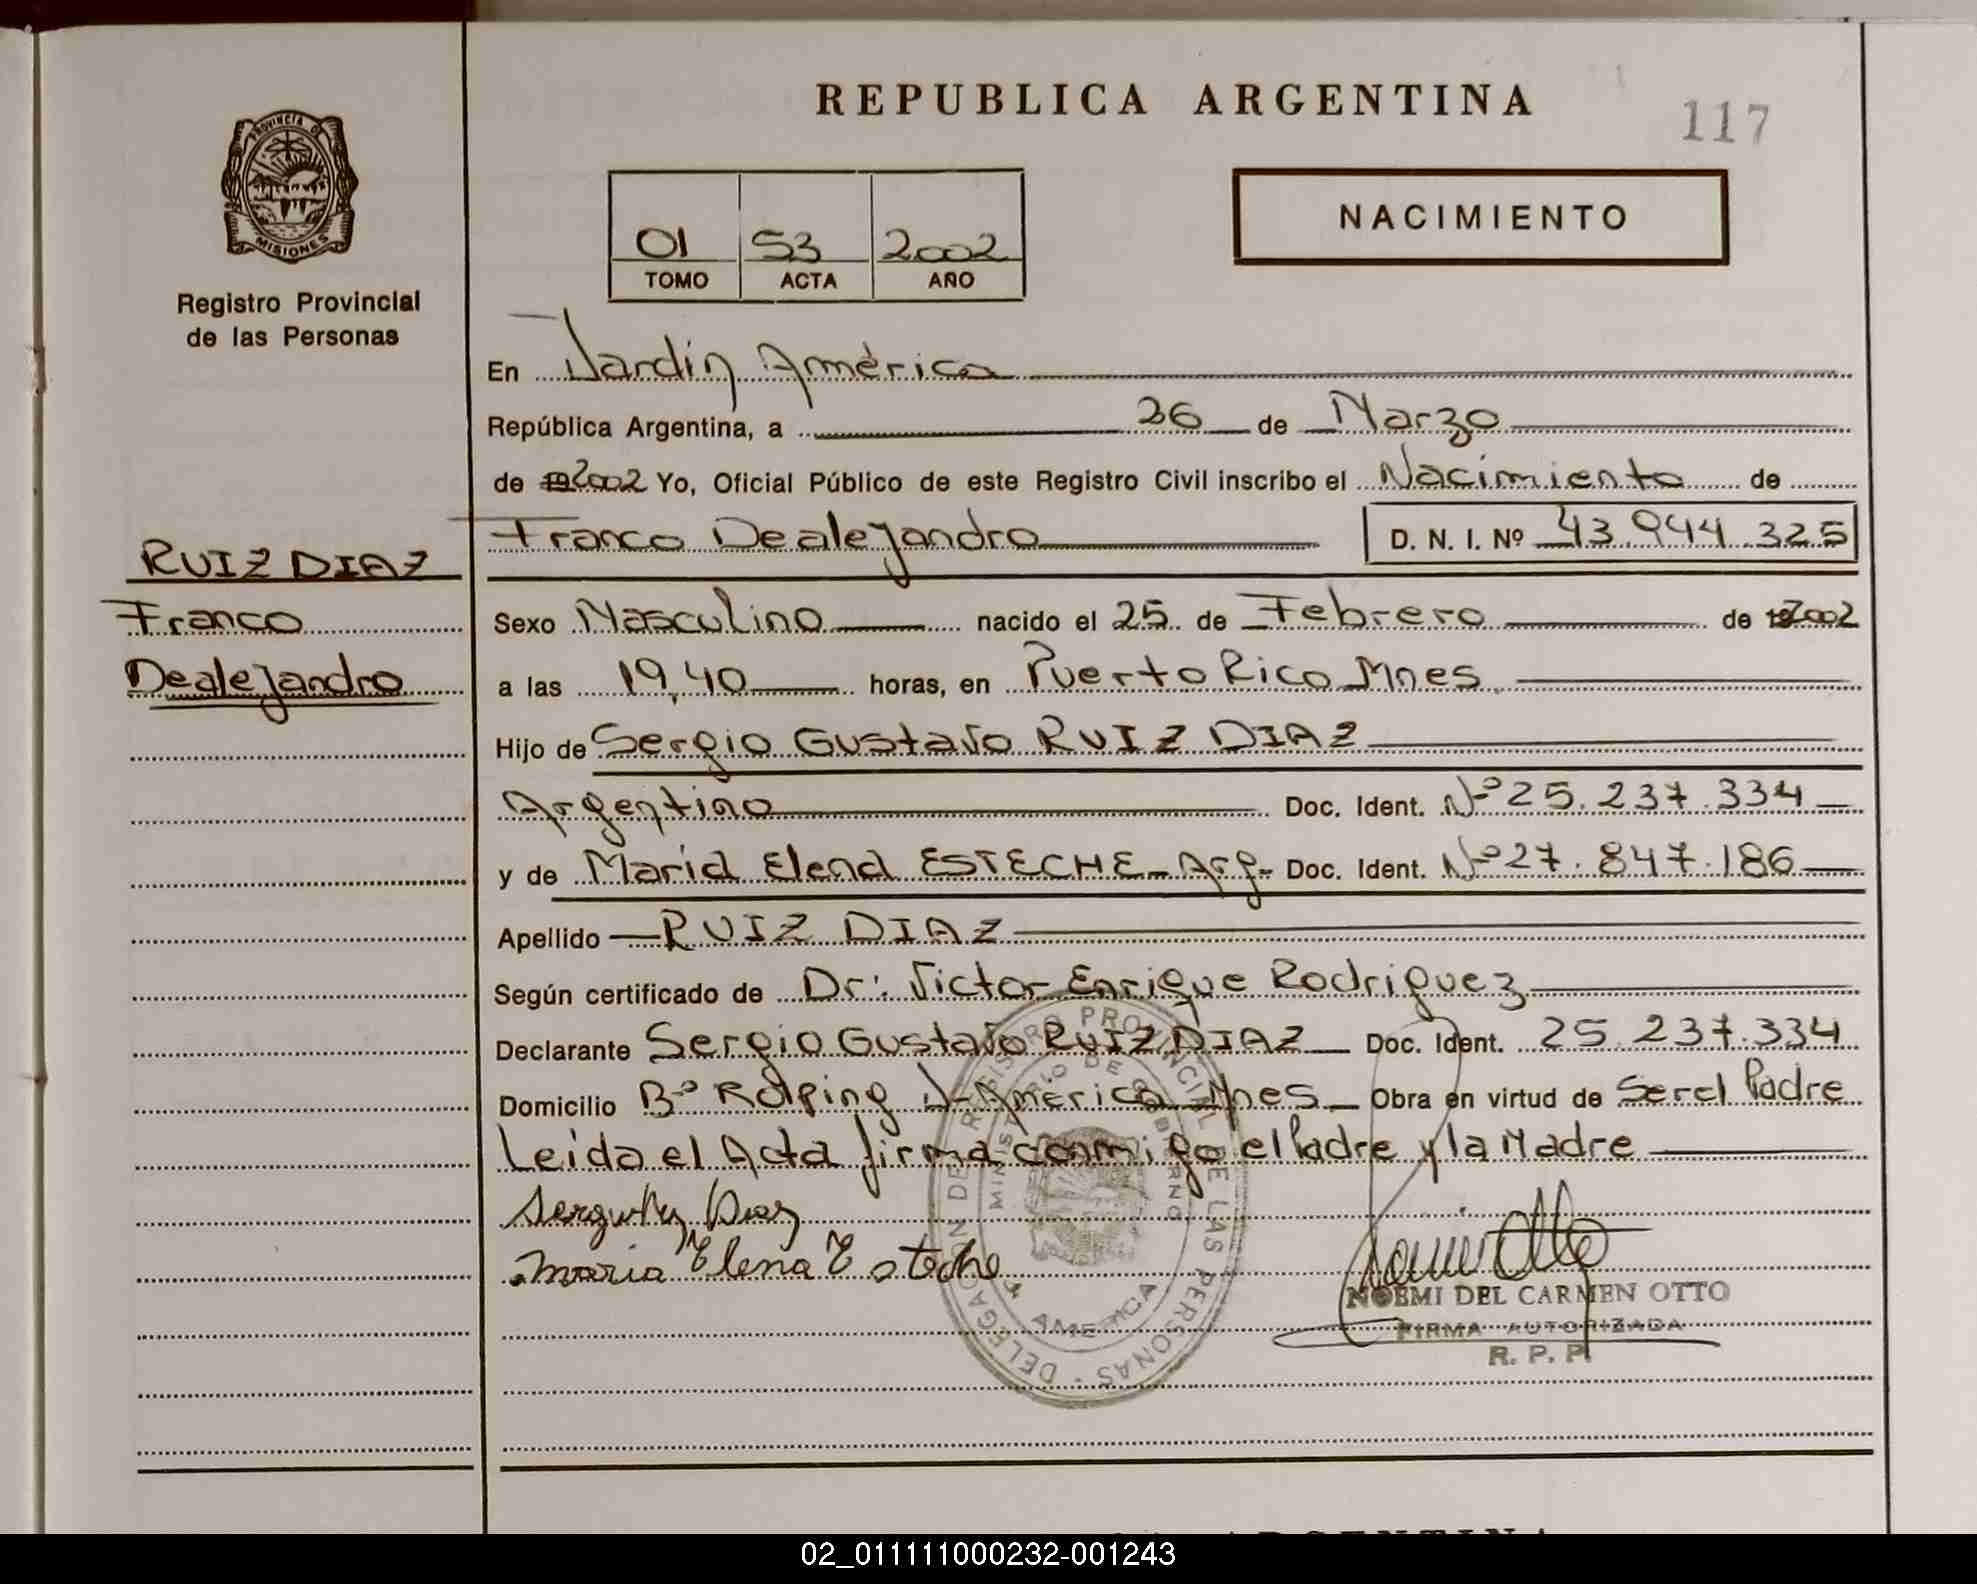 REPUBLICA ARGENTINA
117
PROVINCIA DE
MISIONES
Registro Provincial
de las Personas
01 53 2002
TOMO ACTA AÑO
NACIMIENTO
En Jardín América
República Argentina, a 26 de Marzo
de 192002 Yo, Oficial Público de este Registro Civil inscribo el Nacimiento de
Franco Dealejandro D. N. I. Nº 43.944.325
RUIZ DIAZ
Franco
Dealejandro
Sexo Masculino nacido el 25 de Febrero de 192002
a las 19,40 horas, en Puerto Rico Mnes
Hijo de Sergio Gustavo RUIZ DIAZ
Argentino Doc. Ident. Nº 25.237.334
y de María Elena ESTECHE - Arg- Doc. Ident. Nº 27.847.186
Apellido RUIZ DIAZ
Según certificado de Dr: Victor Enrique Rodriguez
Declarante Sergio Gustavo RUIZ DIAZ Doc. Ident. 25.237.334
Domicilio Bº Kolping J-América Mnes Obra en virtud de Ser el Padre
Leida el Acta firma conmigo el Padre y la Madre
Diaz
Maria Elena Esteche
DELEGACION DE REGISTRO PROVINCIAL DE LAS PERSONAS
MINISTERIO DE GOBIERNO
AMERICA
NOEMI DEL CARMEN OTTO
FIRMA AUTORIZADA
R. P. P.
ARGENTINA
02_011111000232-001243